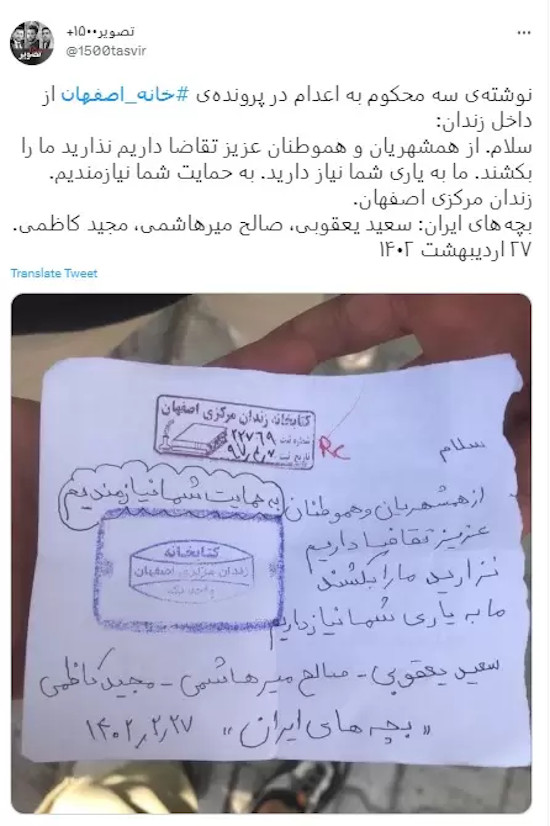 تصویر۱۵۰۰+
@1500tasvir
نوشته‌ی سه محکوم به اعدام در پرونده‌ی #خانه_اصفهان از
داخل زندان:
سلام. از همشهریان و هموطنان عزیز تقاضا داریم نذارید ما را
بکشند. ما به یاری شما نیاز دارید. به حمایت شما نیازمندیم.
زندان مرکزی اصفهان.
بچه‌های ایران: سعید یعقوبی، صالح میرهاشمی، مجید کاظمی.
۲۷ اردیبهشت ۱۴۰۲
Translate Tweet
کتابخانه زندان مرکزی اصفهان
شماره ثبت ۲۲۷۶۹
تاریخ ثبت ۹۷٫۴٫۷
Rc
سلام
از همشهریان و هموطنان
به حمایت شما نیازمندیم
عزیز تقاضا داریم
نزارید ما را بکشند
ما به یاری شما نیاز داریم
کتابخانه
زندان مرکزی اصفهان
واحد یک
سعید یعقوبی - صالح میرهاشمی - مجید کاظمی
"بچه های ایران" ۱۴۰۲٫۲٫۲۷